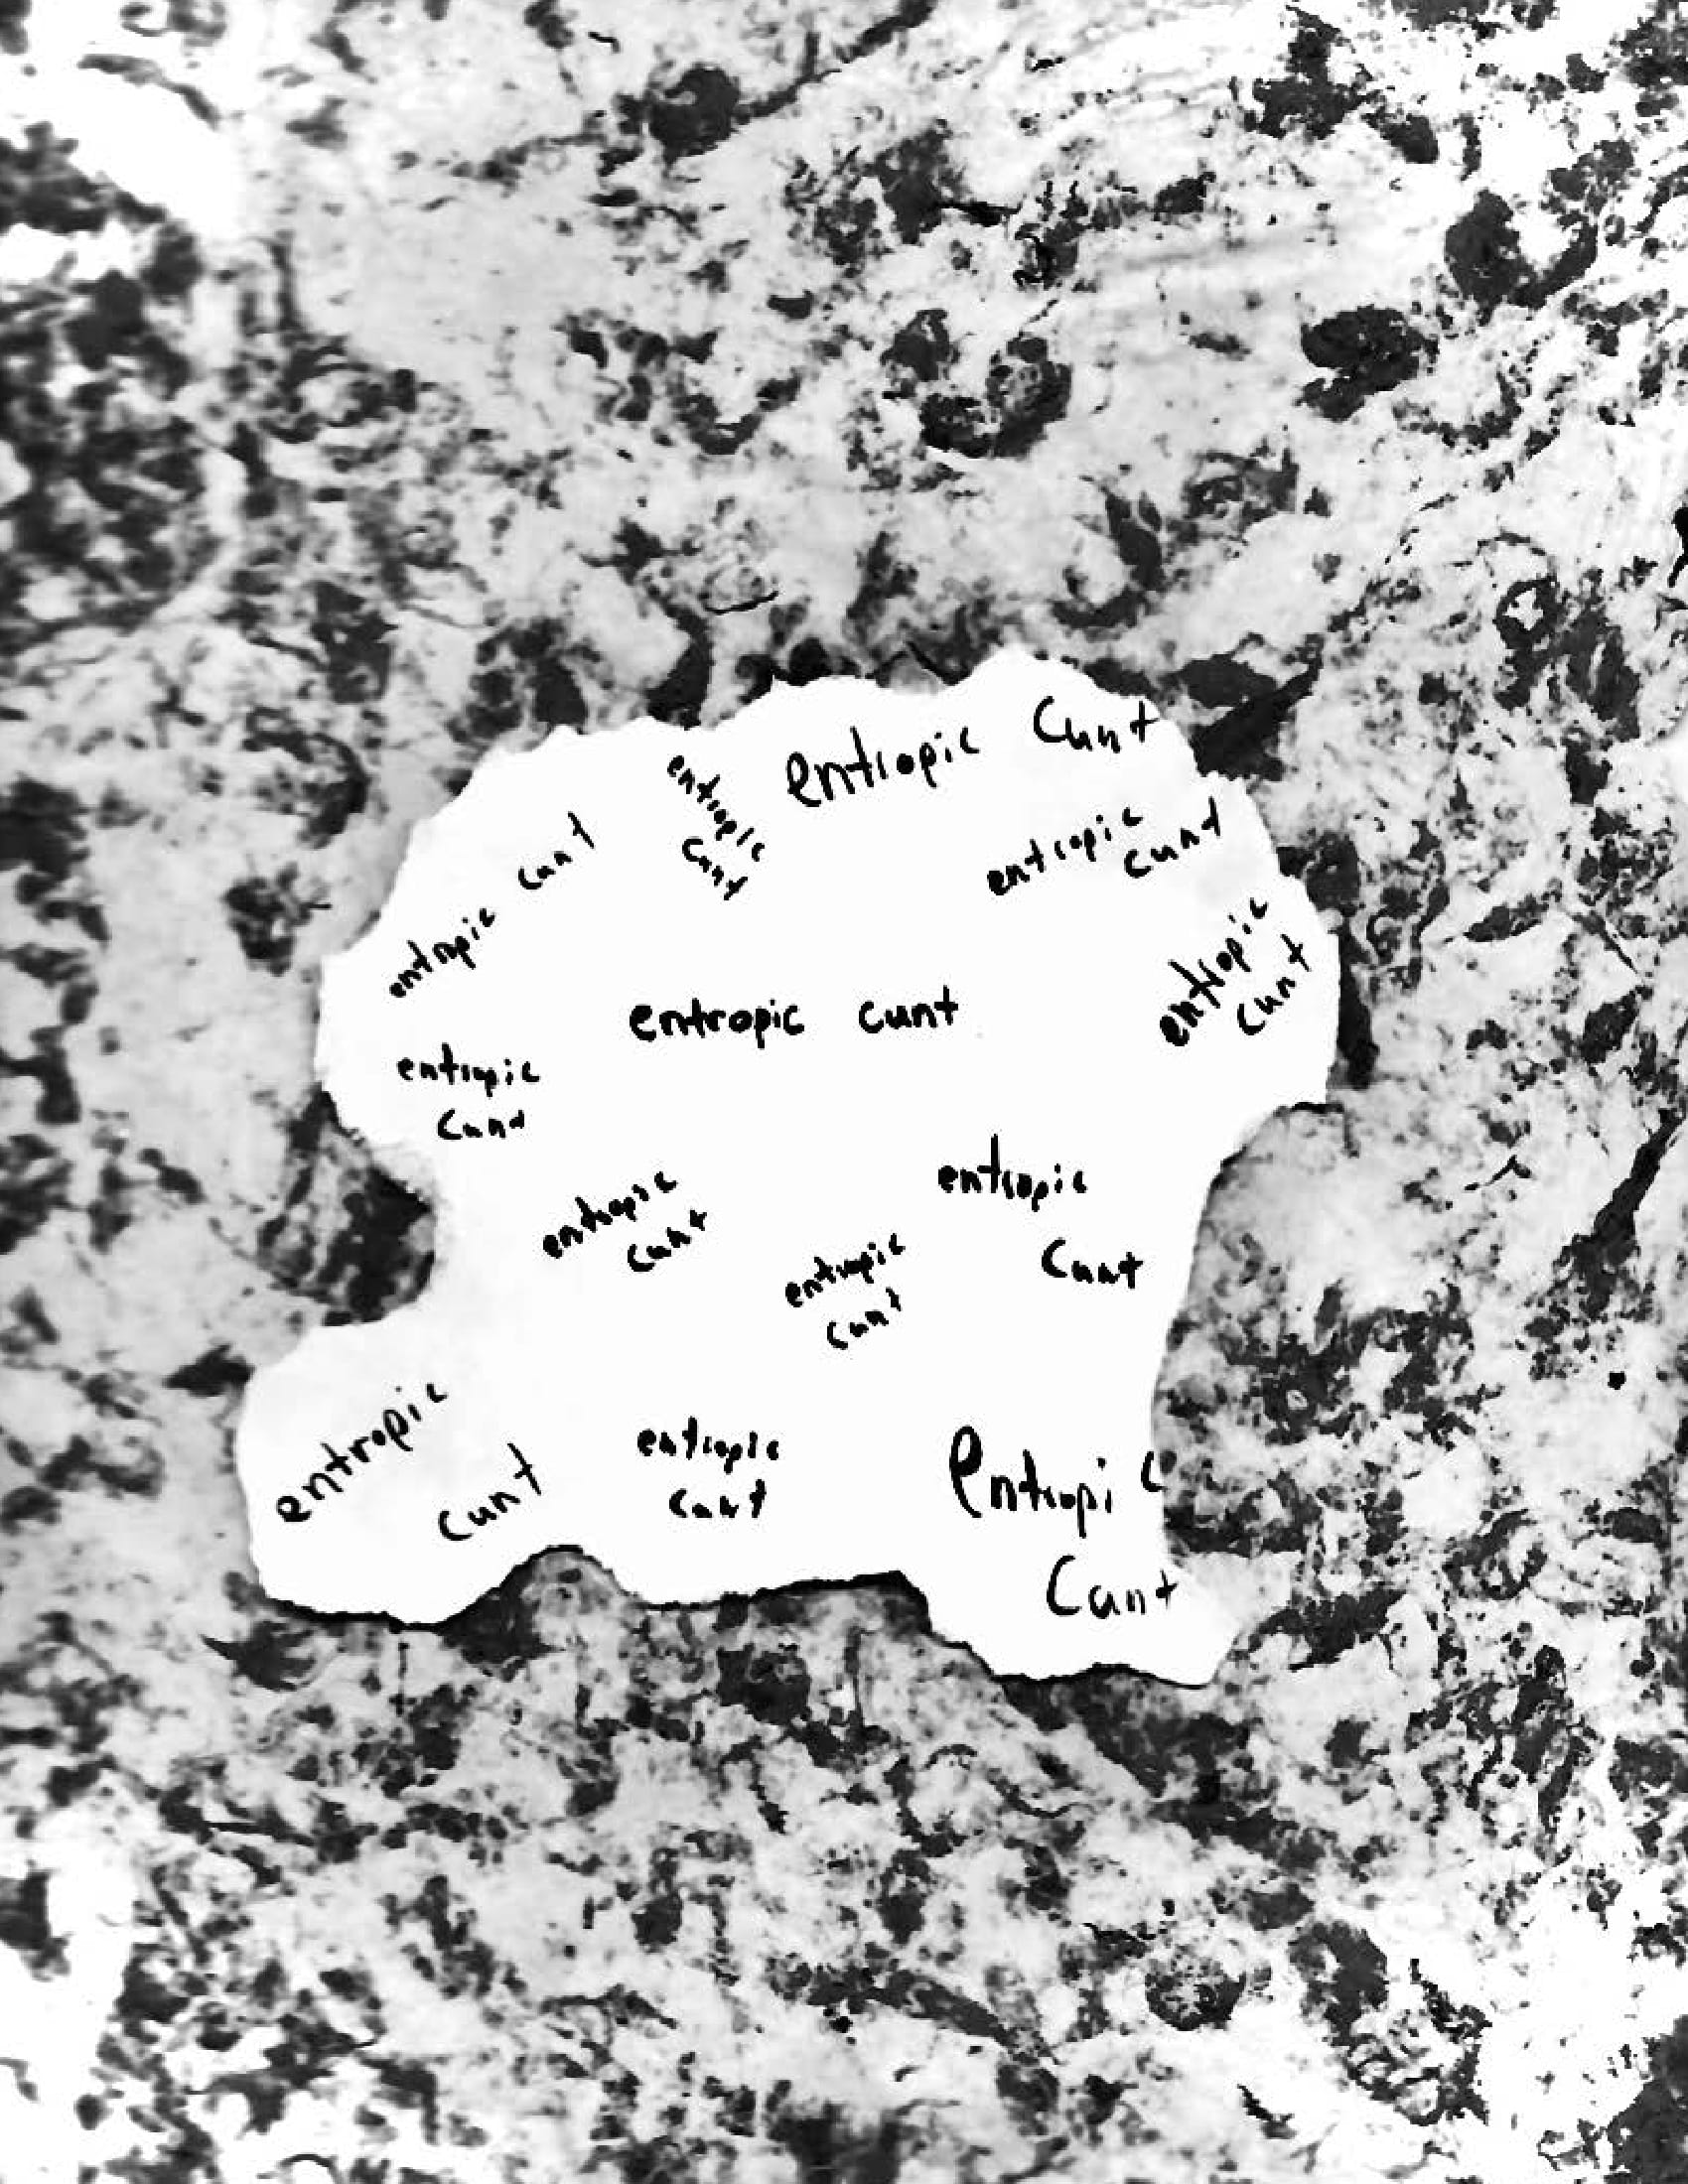 entropic cunt
entropic
cunt
entropic cunt
entropic
cunt
entropic
cunt
entropic cunt
entropic
cunt
entropic
cunt
entropic
cunt
entropic
cunt
entropic
cunt
entropic
cunt
Entropic
Cunt